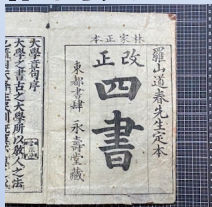 林家正本
羅山道春先生定本
改正
四書
東都書肆 永壽堂藏
大學章句序
大學之書古之大學所以敎人之法